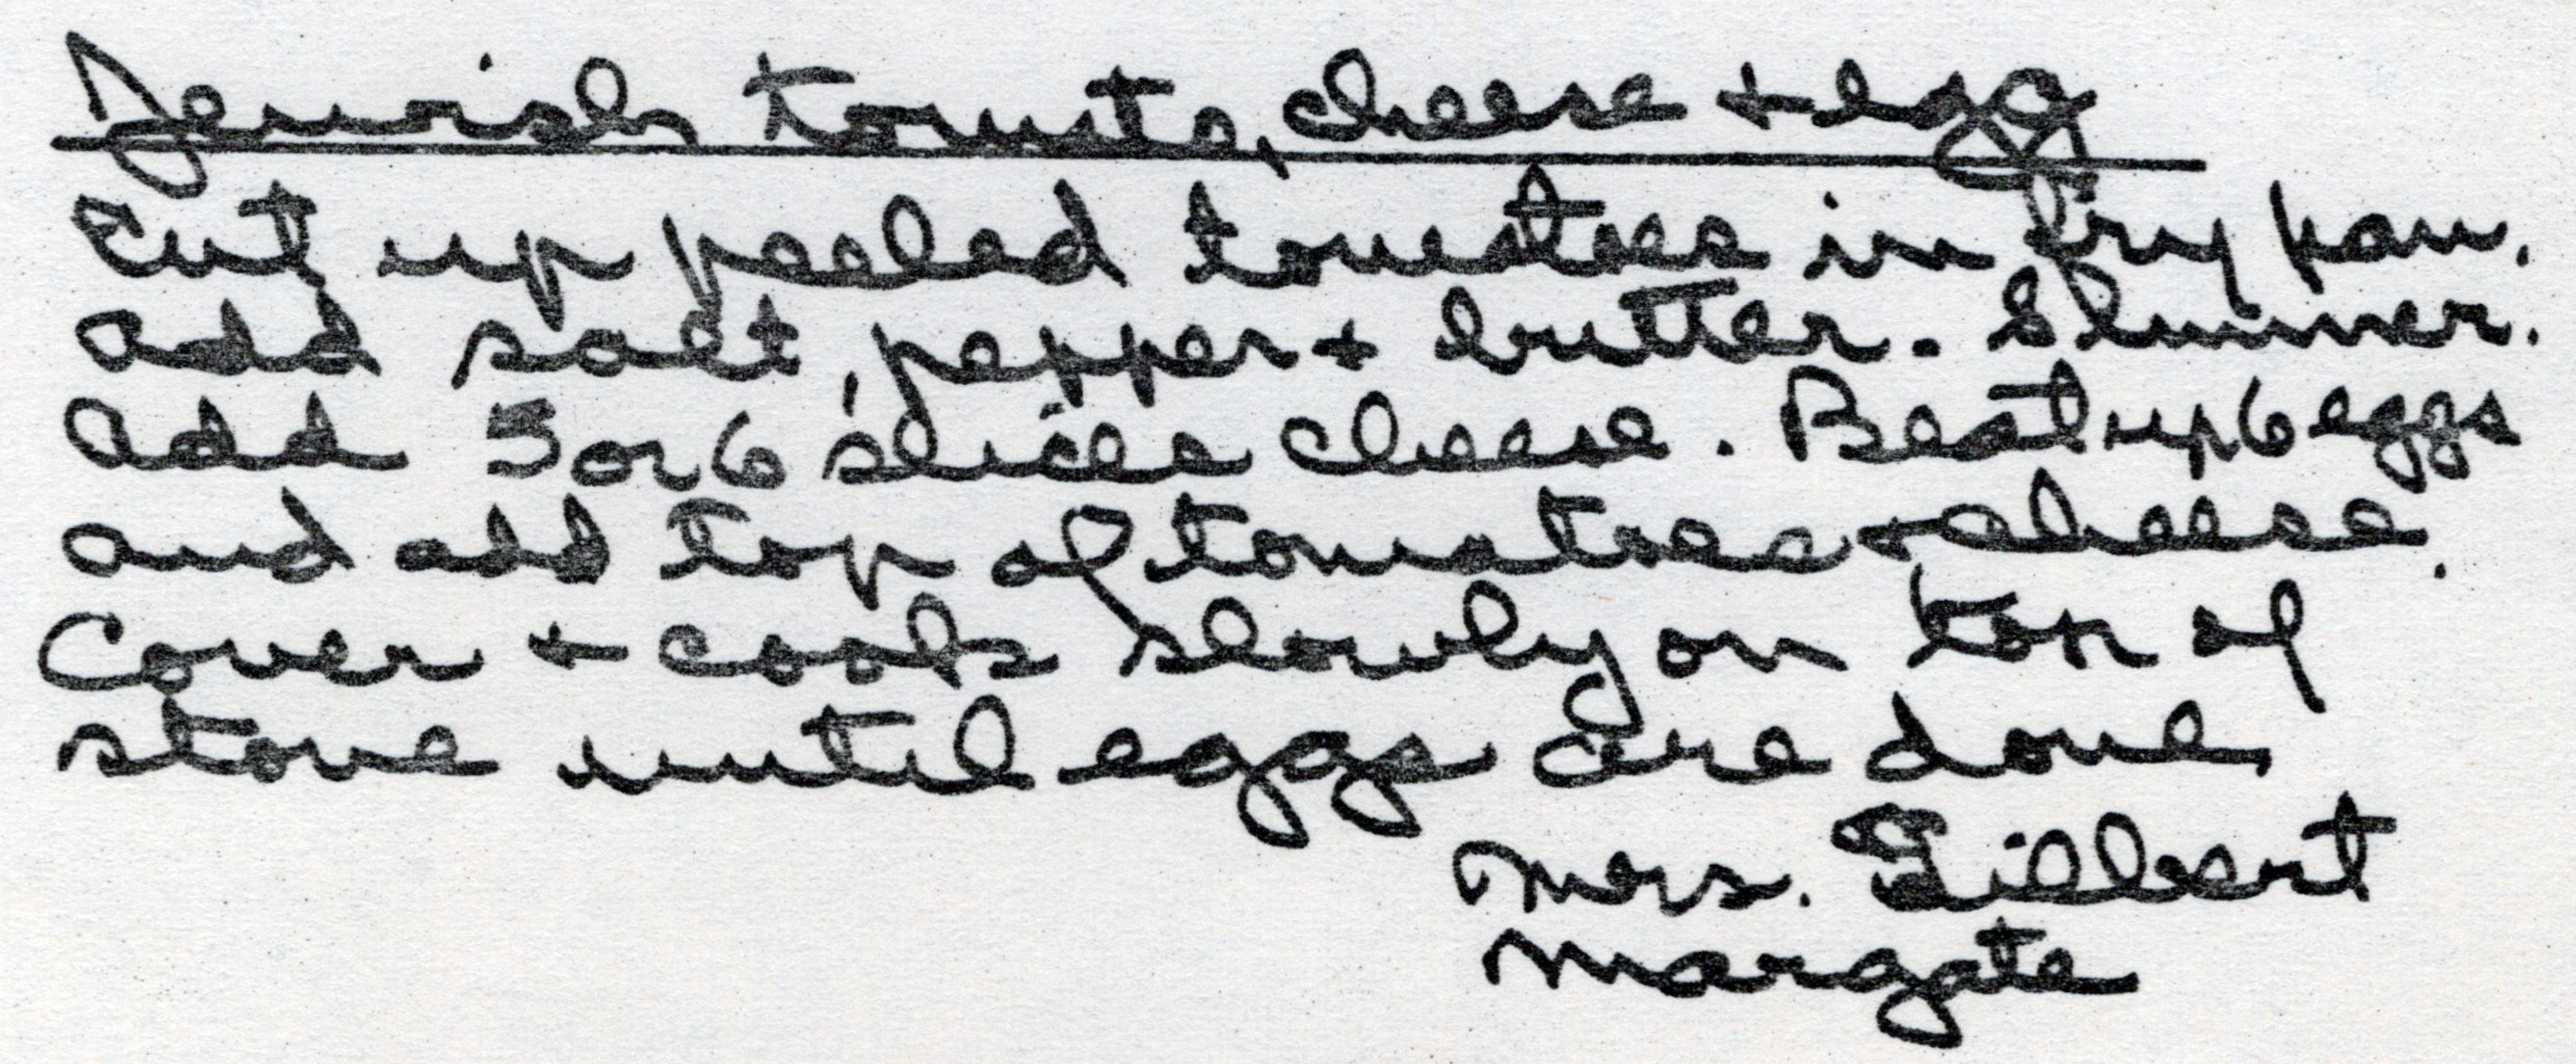 Jewish tomato, cheese + egg
Cut up peeled tomatoes in fry pan.
Add salt, pepper + butter. Simmer.
Add 5 or 6 slices cheese. Beat up 6 eggs
and add top of tomatoes + cheese.
Cover + cook slowly on top of
stove until eggs are done
Mrs. Gilbert
Margate